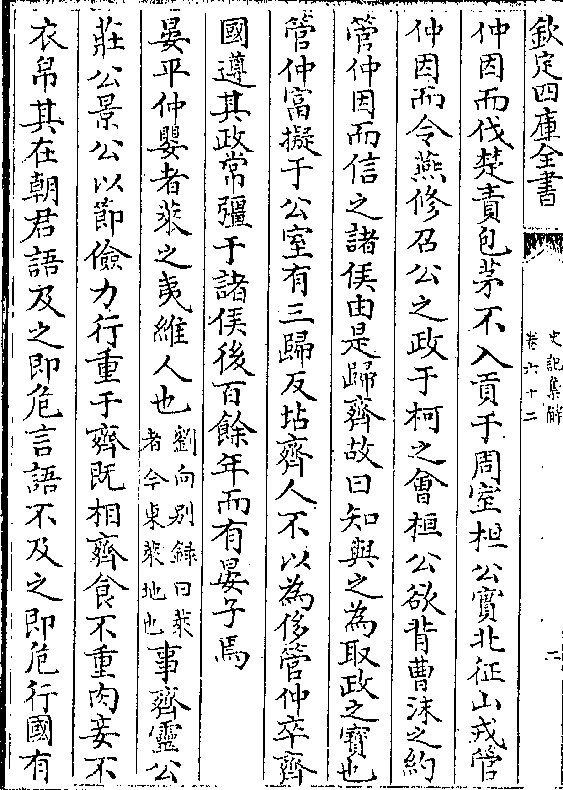 欽定四庫全書
史記集解
卷六十二
二
仲因而伐楚責包茅不入貢于周室桓公實北征山戎管
仲因而令燕修召公之政于柯之㑹桓公欲背曹沫之約
管仲因而信之諸侯由是歸齊故曰知與之為取政之寶也
管仲富擬于公室有三歸反坫齊人不以為侈管仲卒齊
國遵其政常彊于諸侯後百餘年而有晏子焉
晏平仲嬰者萊之夷維人也劉向别録曰萊者今東萊地也事齊靈公
莊公景公以節儉力行重于齊既相齊食不重肉妾不
衣帛其在朝君語及之即危言語不及之即危行國有